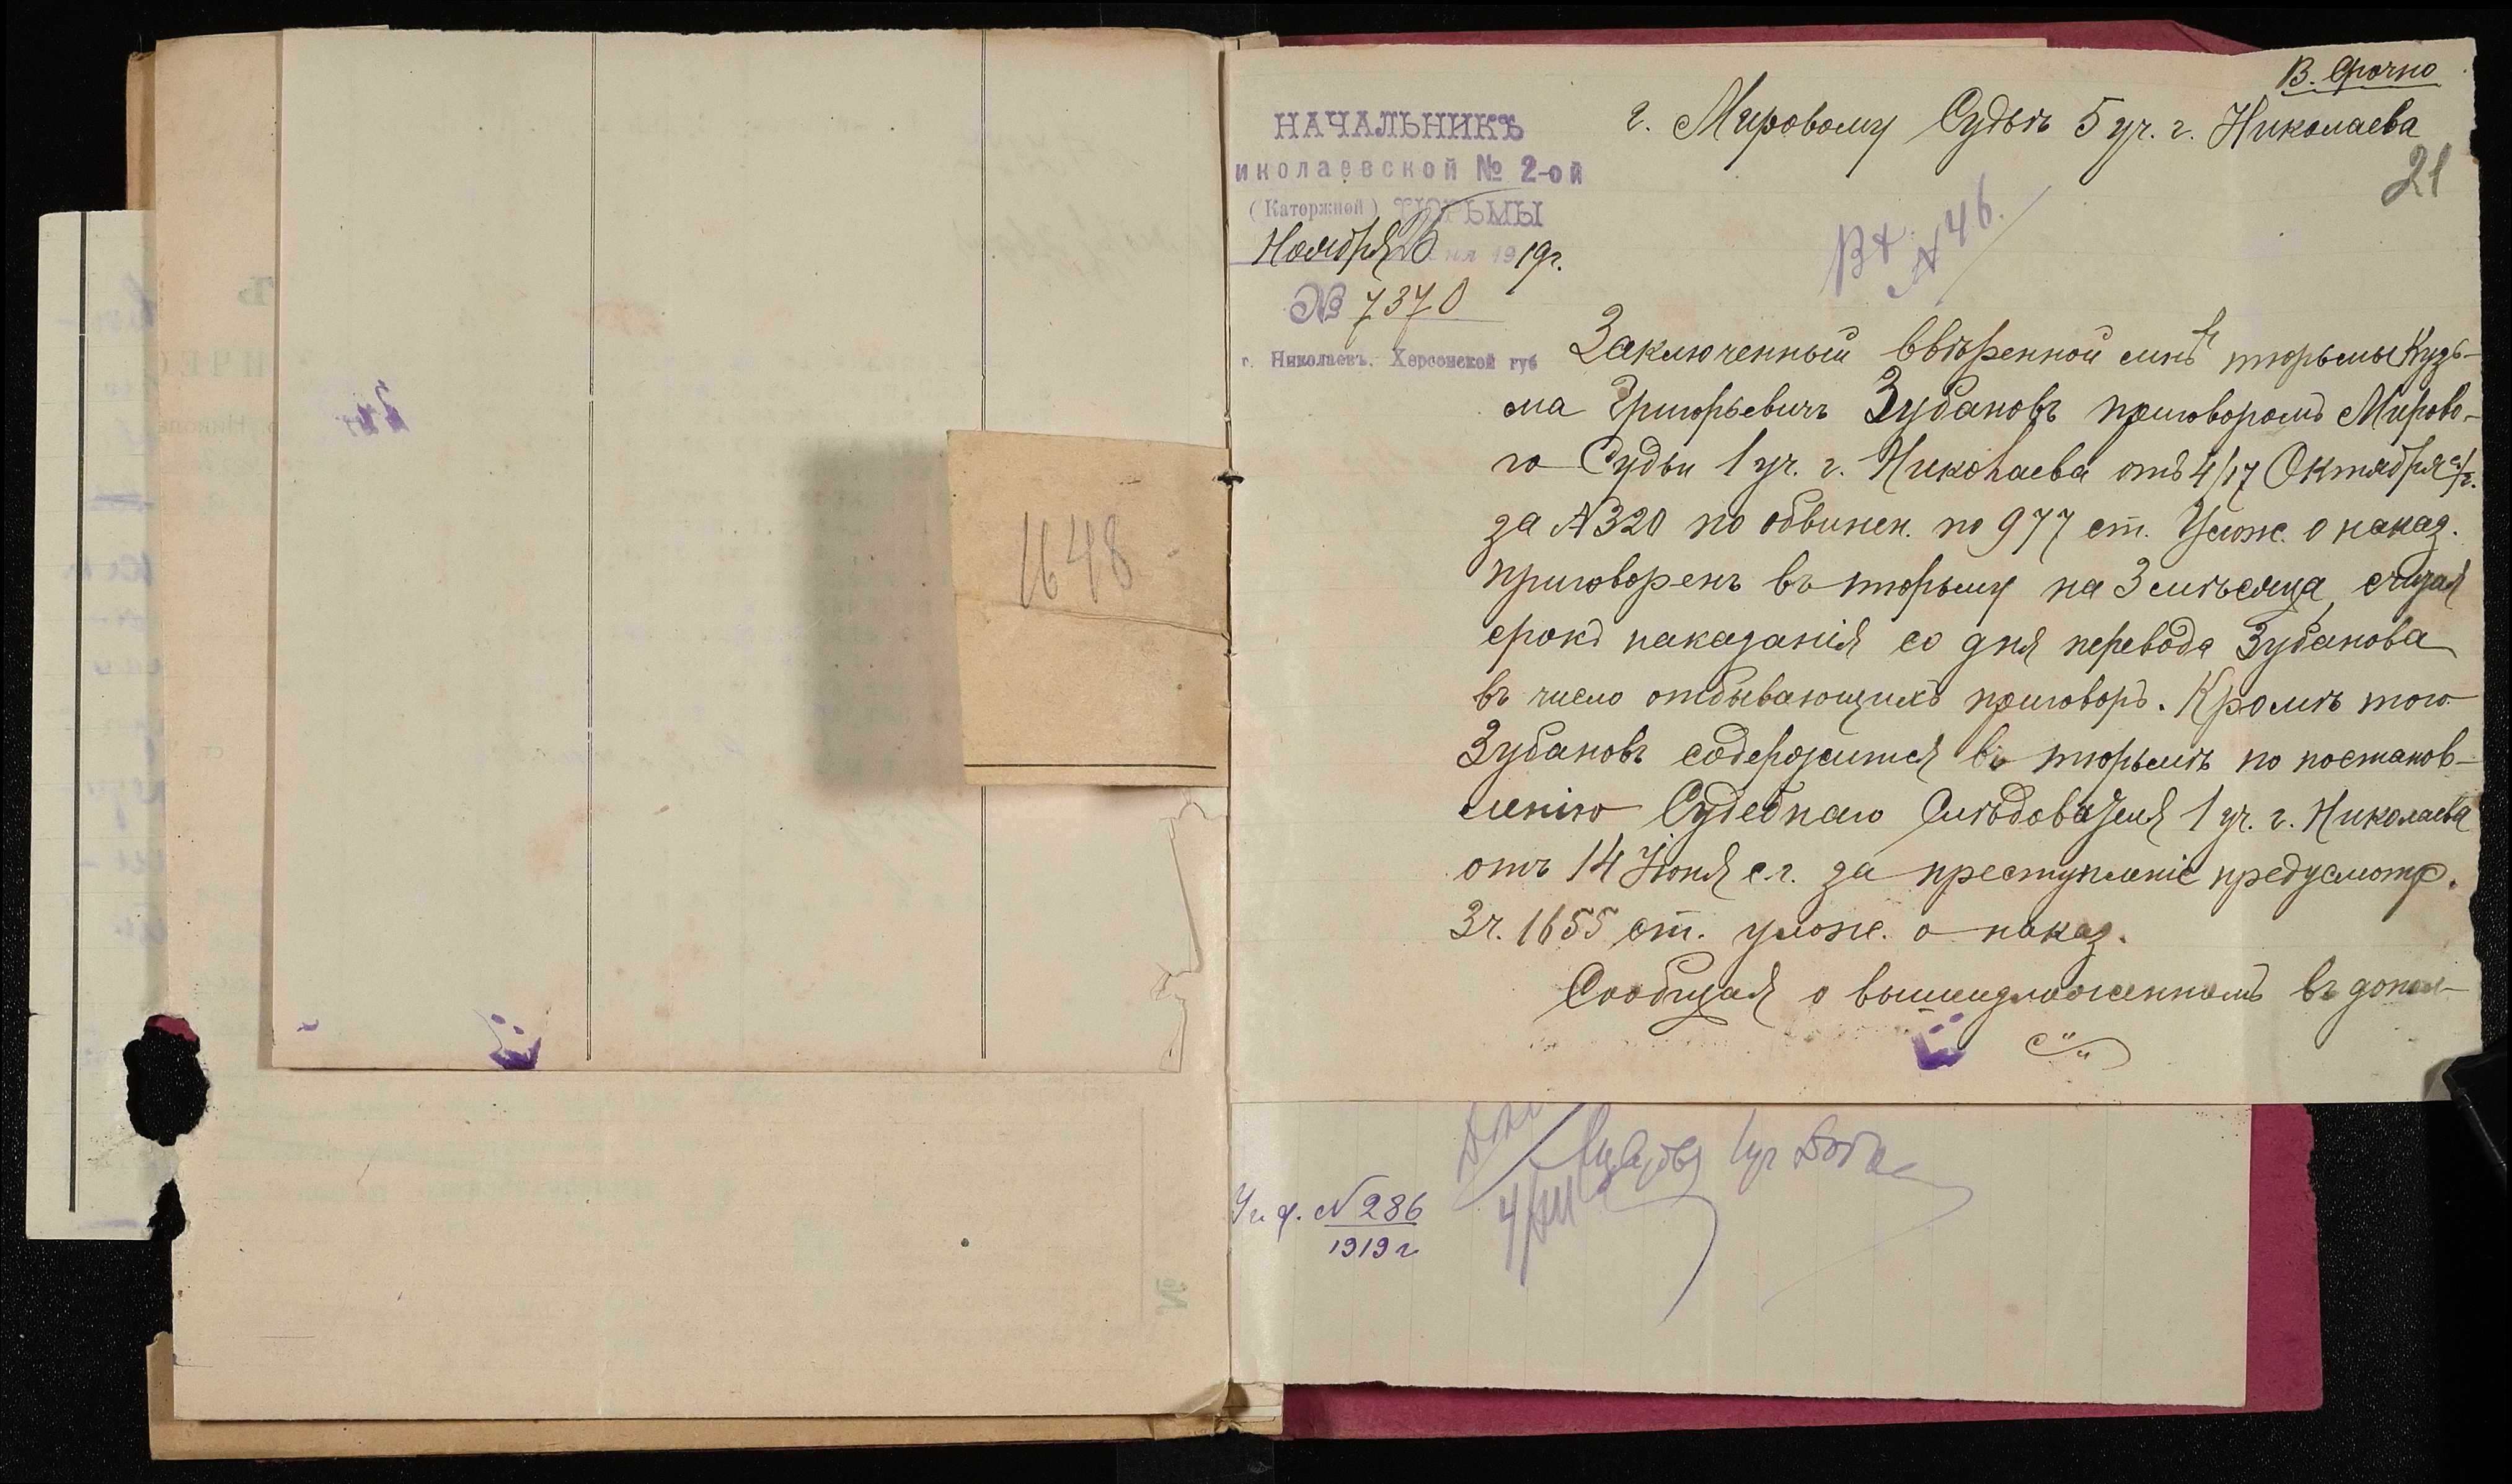 1648
В. Срочно
г. Мировому Судьѣ 5 уч. г. Николаева
21
НАЧАЛЬНИКЪ
иколаевской № 2-ой
(Каторжной) ТЮРЬМЫ
Ноября 26 дня 1919г.
№ 7370
г. Николаевъ, Херсонской губ
46.
Заключенный ввѣренной мнѣ тюрьмы Кузь-
ма Григорьевичъ Зубановъ приговоромъ Мирово-
го Судьи 1 уч. г. Николаева отъ 4/17 Октября с/г.
за № 320 по обвинен. по 977 ст. Улож. о наказ.
приговоренъ въ тюрьму на 3 мѣсяца, считая
срокъ наказанія со дня перевода Зубанова
въ число отбывающихъ приговоръ. Кромѣ того
Зубановъ содержится въ тюрьмѣ по постанов-
ленію Судебнаго Слѣдователя 1 уч. г. Николаева
отъ 14 Іюня с.г. за преступленіе предусмотр.
3 ч. 1655 ст. улож. о наказ.
Сообщая о вышеизложенномъ въ допол-
У. д. № 286
1919 г